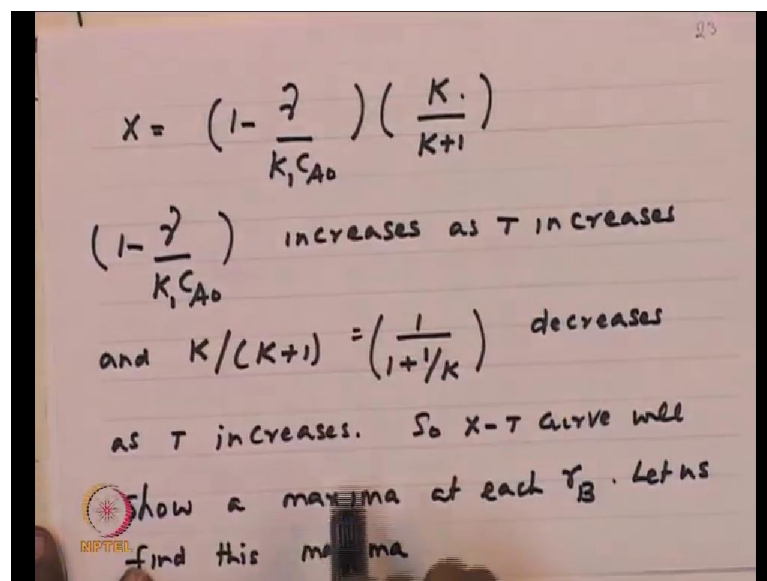 23
X = (1 - r / k₁ C_A0) (K / K+1)
(1 - r / k₁ C_A0) increases as T increases
and K/(K+1) = (1 / 1+1/K) decreases
as T increases. So X-T curve will
show a maxima at each r_B. Let us
find this
NPTEL